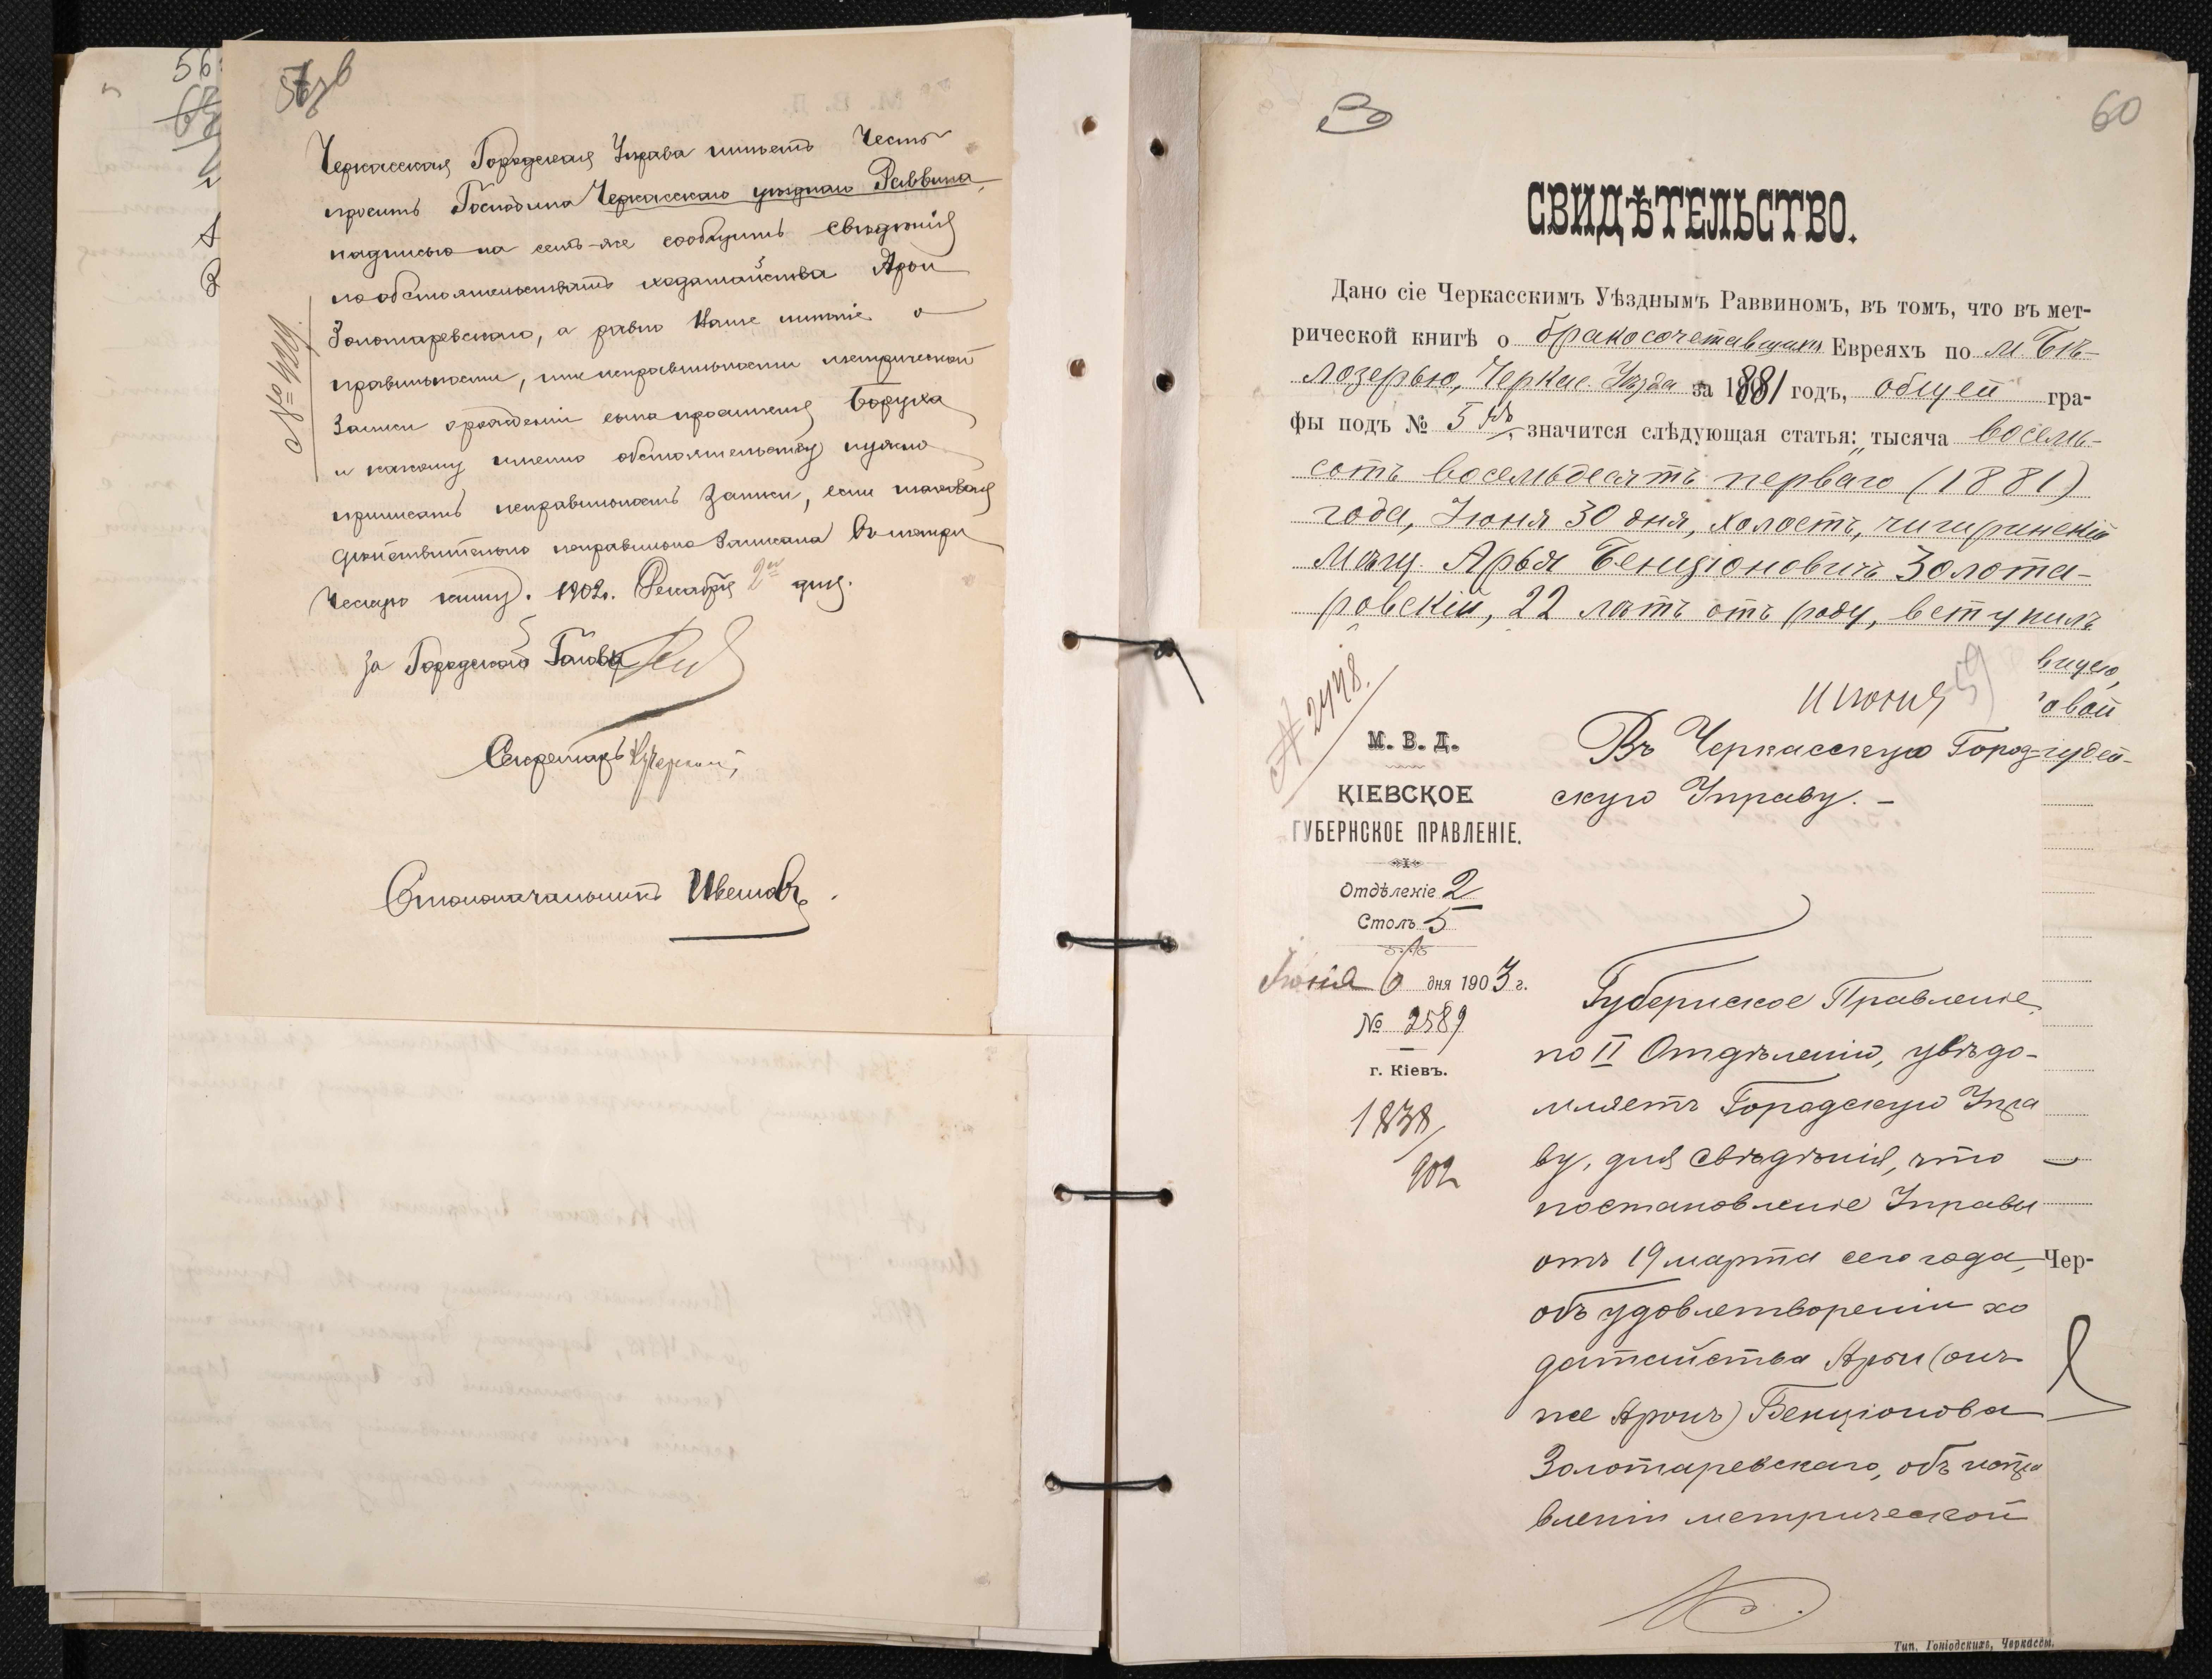 56
Черкасская Городская Управа имѣетъ честь
просить Господина Черкасскаго уѣзднаго Раввина,
надписью на семъ-же сообщить свѣдѣнія
по обстоятельствамъ ходатайства Арьи
Золотаревскаго, а равно Ваше мнѣніе о
правильности, или неправильности метрической
записи о рожденіи сына просителя Боруха
и какому именно обстоятельству нужно
приписать неправильность записи, если таковая
дѣйствительно неправильно записана въ метри
ческую книгу. 1902 г. Декабря 2 дня.
За Городского Голову
Секретарь
Столоначальникъ Ивановъ
60
СВИДѢТЕЛЬСТВО.
Дано сіе Черкасскимъ Уѣзднымъ Раввиномъ, въ томъ, что въ мет-
рической книгѣ о бракосочетавшихся Евреяхъ по м. Бѣ-
лозерью, Черкас. Уѣзда за 1881 годъ, общей гра-
фы подъ № 5 значится слѣдующая статья: „тысяча восемь-
сотъ восемьдесятъ перваго (1881)
года, Іюня 30 дня, холостъ, чигиринскій
мѣщ. Арья Бенціоновичъ Золота-
ровскій, 22 лѣтъ отъ роду, вступилъ
вицею,
овой
іудей-
11 июня 59
№ 2448.
М. В. Д.
КІЕВСКОЕ
ГУБЕРНСКОЕ ПРАВЛЕНІЕ.
Отдѣленіе 2
Столъ 5
Іюня 6 дня 1903 г.
№ 2589
г. Кіевъ.
1838/
902
Въ Черкасскую Город-
скую Управу. –
Губернское Правленіе,
по II Отдѣленію, увѣдо-
мляетъ Городскую Упра
ву, для свѣдѣнія, что
постановленіе Управы
отъ 19 марта сего года,
объ удовлетвореніи хо
датайства Арьи (онъ
же Аронъ) Бенціонова
Золотаревскаго, объ испра
вленіи метрической
Чер-
Тип. Гоніодскихъ, Черкассы.